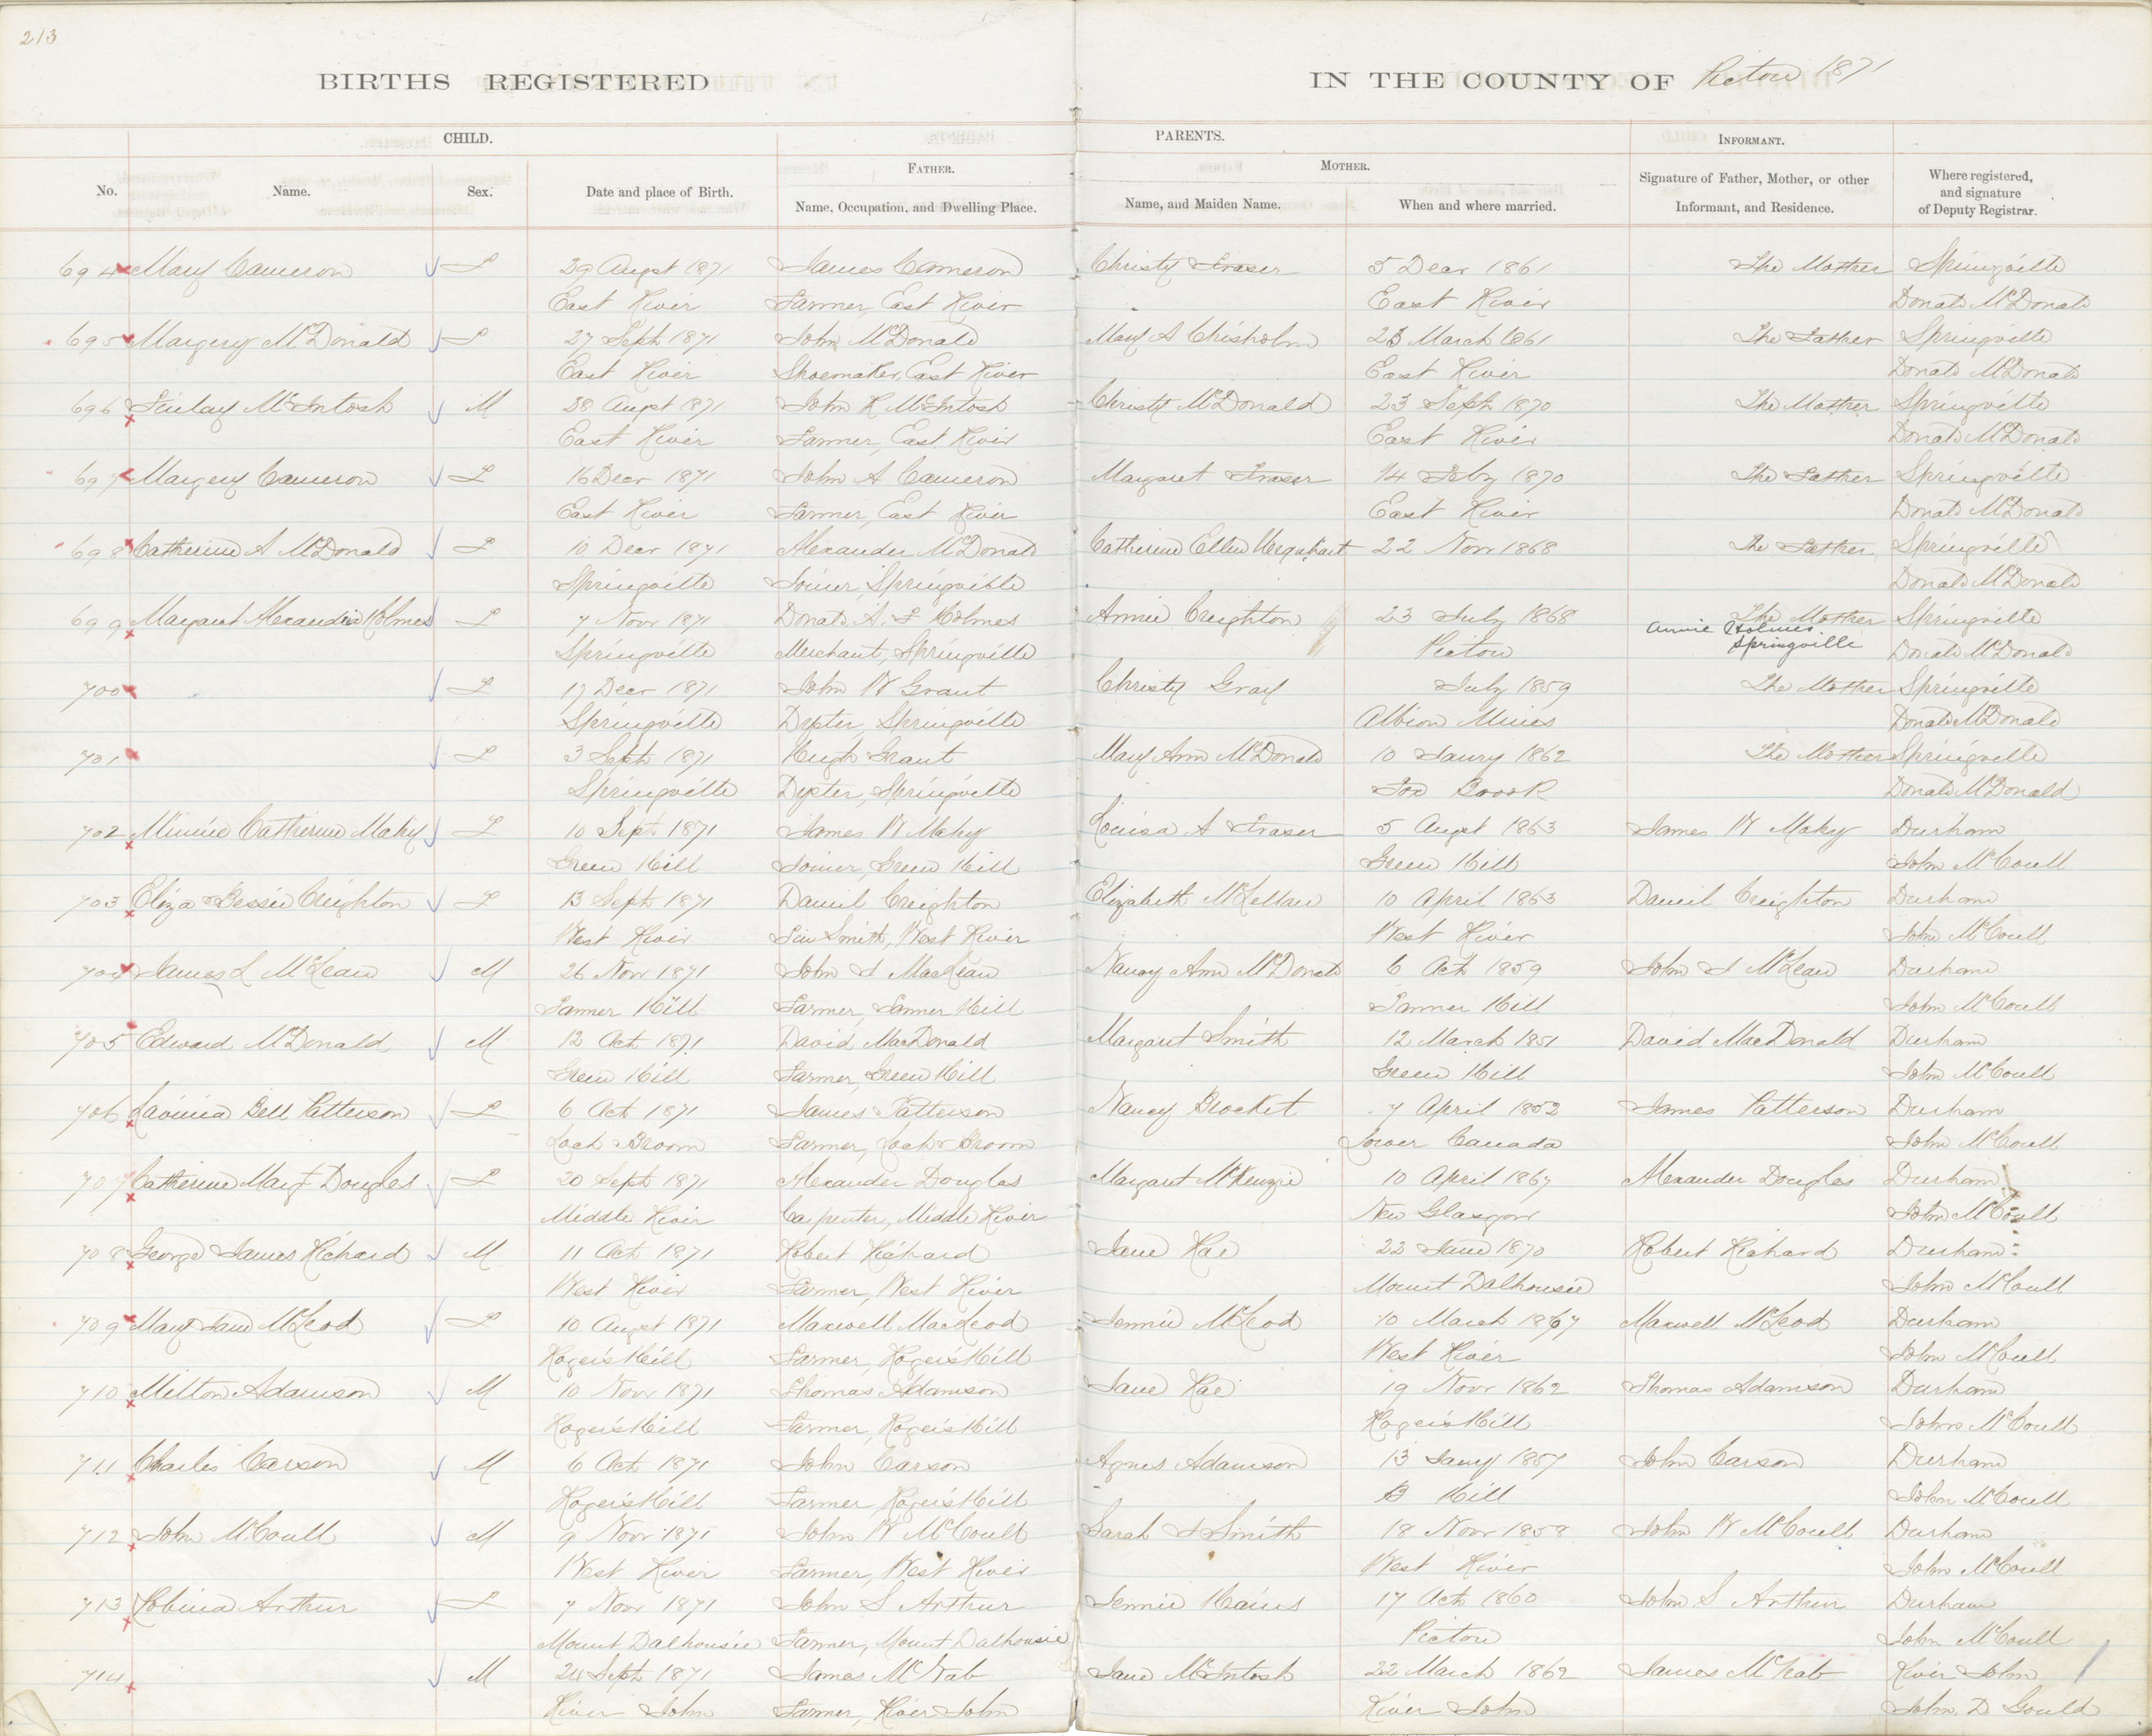 213
BIRTHS REGISTERED IN THE COUNTY OF Pictou 1871
CHILD. PARENTS. INFORMANT.
FATHER. MOTHER.
No. Name. Sex. Date and place of Birth. Name, Occupation, and Dwelling Place. Name, and Maiden Name. When and where married. Signature of Father, Mother, or other Informant, and Residence. Where registered, and signature of Deputy Registrar.
694 Mary Cameron F 29 Augst 1871 James Cameron Christy Fraser 5 Decr 1861 The Mother Springville
East River Farmer, East River East River Donald McDonald
695 Margery McDonald F 27 Sept 1871 John McDonald Mary A Chisholm 23 March 1861 The Father Springville
East River Shoemaker, East River East River Donald McDonald
696 Finlay McIntosh M 28 Augst 1871 John R McIntosh Christy McDonald 23 Sept 1870 The Mother Springville
East River Farmer, East River East River Donald McDonald
697 Margery Cameron F 16 Decr 1871 John A Cameron Margaret Fraser 14 Feby 1870 The Father Springville
East River Farmer, East River East River Donald McDonald
698 Catherine A McDonald F 10 Decr 1871 Alexander McDonald Catherine Ellen Urquhart 22 Novr 1868 The Father Springville
Springville Joiner, Springville Donald McDonald
699 Margaret Alexandria Holmes F 7 Novr 1871 Donald A. F Holmes Annie Creighton 23 July 1868 The Mother Springville
Annie Holmes
Springville
Springville Merchant, Springville Pictou Donald McDonald
700 F 17 Decr 1871 John W Grant Christy Gray July 1859 The Mother Springville
Springville Dyster, Springville Albion Mines Donald McDonald
701 F 3 Sept 1871 Hugh Grant Mary Ann McDonald 10 Janry 1862 The Mother Springville
Springville Dyster, Springville Fox Brook Donald McDonald
702 Minnie Catherine Mahy F 10 Sept 1871 James W Mahy Louisa A Fraser 5 Augst 1863 James W Mahy Durham
Green Hill Joiner, Green Hill Green Hill John McCoull
703 Eliza Bessie Creighton F 13 Sept 1871 Daniel Creighton Elizabeth McLellan 10 April 1863 Daniel Creighton Durham
West River Tin Smith, West River West River John McCoull
704 James L McLean M 26 Novr 1871 John F MacLean Nancy Ann McDonald 6 Oct 1859 John F McLean Durham
Tanner Hill Farmer, Tanner Hill Tanner Hill John McCoull
705 Edward McDonald M 12 Oct 1871 David MacDonald Margaret Smith 12 March 1851 David MacDonald Durham
Green Hill Farmer, Green Hill Green Hill John McCoull
706 Lavinia Bell Patterson F 6 Oct 1871 James Patterson Nancy Brocket 7 April 1852 James Patterson Durham
Loch Broom Farmer, Loch Broom Lower Canada John McCoull
707 Catherine Margt Douglas F 20 Sept 1871 Alexander Douglas Margaret McKenzie 10 April 1867 Alexander Douglas Durham
Middle River Carpenter, Middle River New Glasgow John McCoull
708 George James Richard M 11 Oct 1871 Robert Richard Jane Rae 22 June 1870 Robert Richard Durham
West River Farmer, West River Mount Dalhousie John McCoull
709 Mary Jane McLeod F 10 Augst 1871 Maxwell MacLeod Jennie McLeod 10 March 1867 Maxwell McLeod Durham
Roger's Hill Farmer, Roger's Hill West River John McCoull
710 Milton Adamson M 10 Novr 1871 Thomas Adamson Jane Rae 19 Novr 1862 Thomas Adamson Durham
Roger's Hill Farmer, Roger's Hill Roger's Hill John McCoull
711 Charles Carson M 6 Oct 1871 John Carson Agnes Adamson 13 Jany 1857 John Carson Durham
Roger's Hill Farmer, Roger's Hill B Hill John McCoull
712 John McCoull M 9 Novr 1871 John W McCoull Sarah J Smith 18 Novr 1858 John W McCoull Durham
West River Farmer, West River West River John McCoull
713 Robina Arthur F 7 Novr 1871 John S Arthur Jennie Hains 17 Oct 1860 John S Arthur Durham
Mount Dalhousie Farmer, Mount Dalhousie Pictou John McCoull
714 M 24 Sept 1871 James McNab Jane McIntosh 22 March 1862 James McNab River John
River John Farmer, River John River John John D Gould